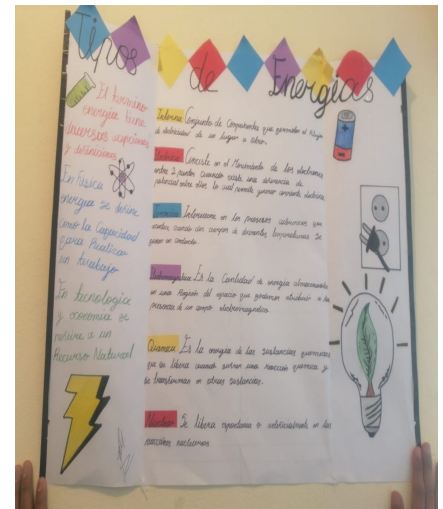 Tipos de Energias
El termino
energia tiene
diversas acepciones
y definiciones
En física
energia se define
como la Capacidad
para Realizar
un trabajo
En tecnologia
y economia se
refiere a un
Recurso Natural
Interna Conjunto de Componentes que permiten el flujo
de electricidad de un lugar a otro.
Consiste en el Movimiento de los electrones
entre 2 puntos cuando existe una diferencia de
potencial entre ellos, lo cual permite generar corriente electrica
Interviene en los procesos calóricos que
cuando dos cuerpos de diferentes temperaturas se
ponen en contacto.
Electromagnetica Es la Cantidad de energia almacenada
en una Región del espacio que podemos atribuir a la
presencia de un campo electromagnetico.
Quimica Es la energia de las sustancias quimicas
que se libera cuando sufren una reacción quimica y
se transforman en otras sustancias.
Nuclear Se libera espontanea o artificialmente en las
reacciones nucleares